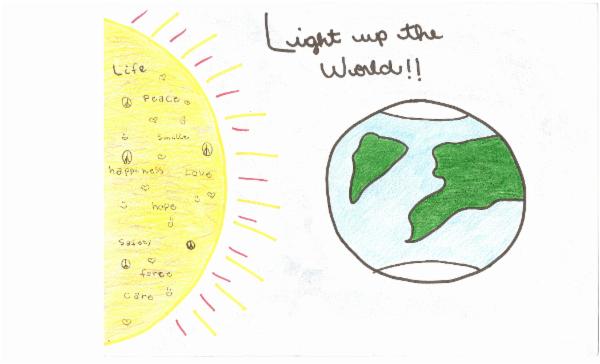 Light up the
World!!
Life
Peace
Smile
happiness Love
hope
Safety
force
Care